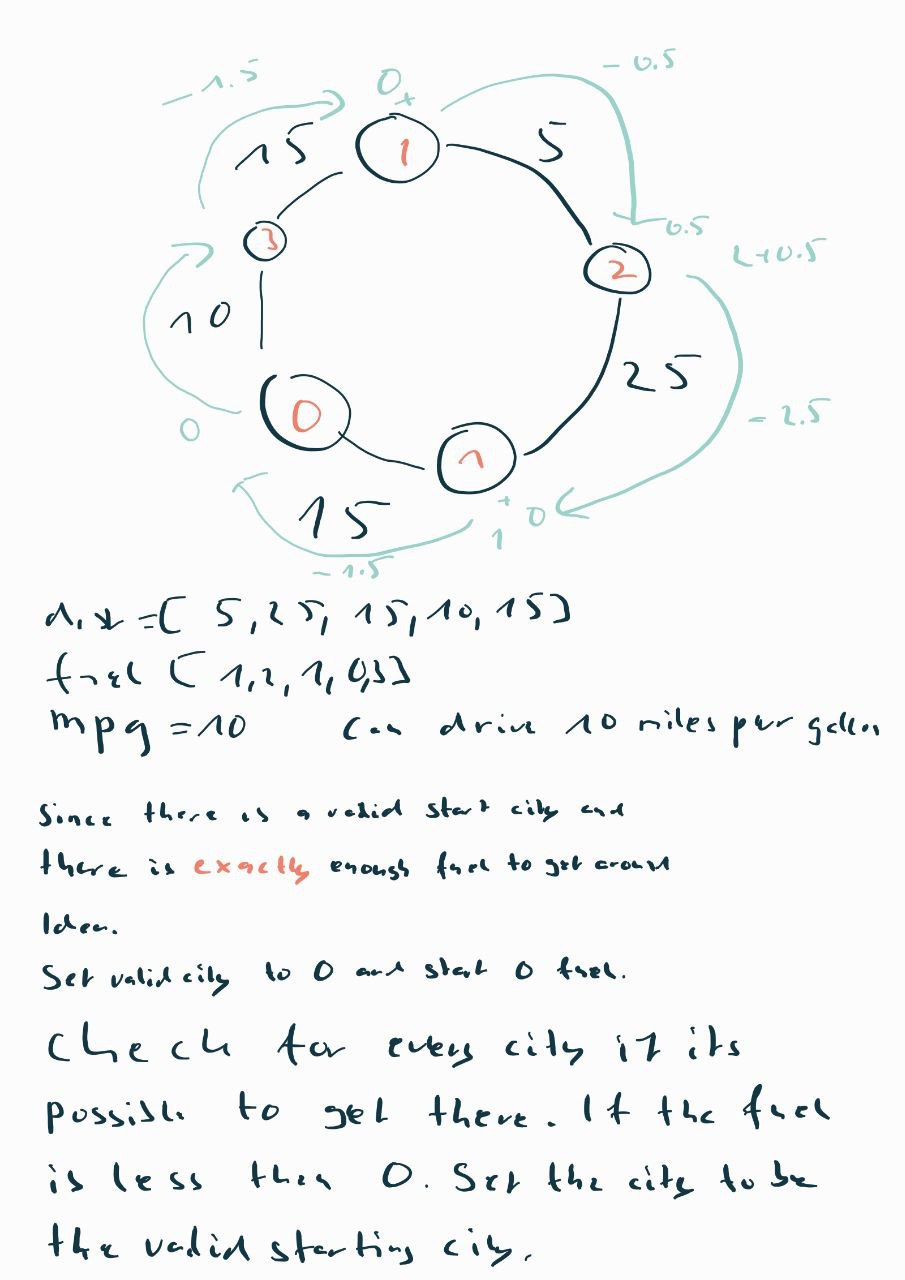 - 1.5
0
+
- 0.5
15
1
5
3
0.5
2+0.5
2
10
25
0
- 2.5
0
1
15
+
0
1
- 1.5
dist =[ 5, 25, 15, 10, 15]
fuel [ 1, 2, 1, 0, 3]
mpg = 10 Can drive 10 miles per gallon
Since there is a valid start city and
there is exactly enough fuel to get around
Idea.
Set valid city to 0 and start 0 fuel.
Check for every city if its
possible to get there. If the fuel
is less then 0. Set the city to be
the valid starting city.